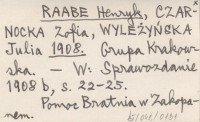 RAABE Henryk, CZAR-
NOCKA Zofia, WYLEŻYŃSKA
Julia 1908. Grupa Krakow-
ska. — W: Sprawozdanie
1908 b, s. 22-25.
Pomoc Bratnia w Zakopa-
nem.